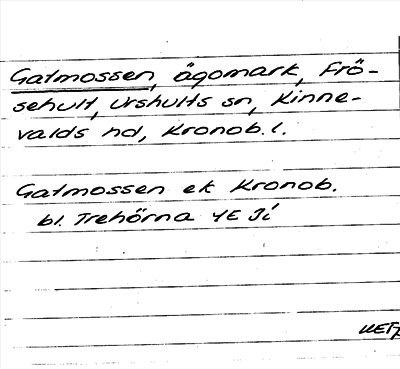 Gatmossen, ägomark, Frö-
sehult, Urshults sn, Kinne-
valds hd, Kronob. l.
Gatmossen ek Kronob.
bl. Trehörna 4E Ji